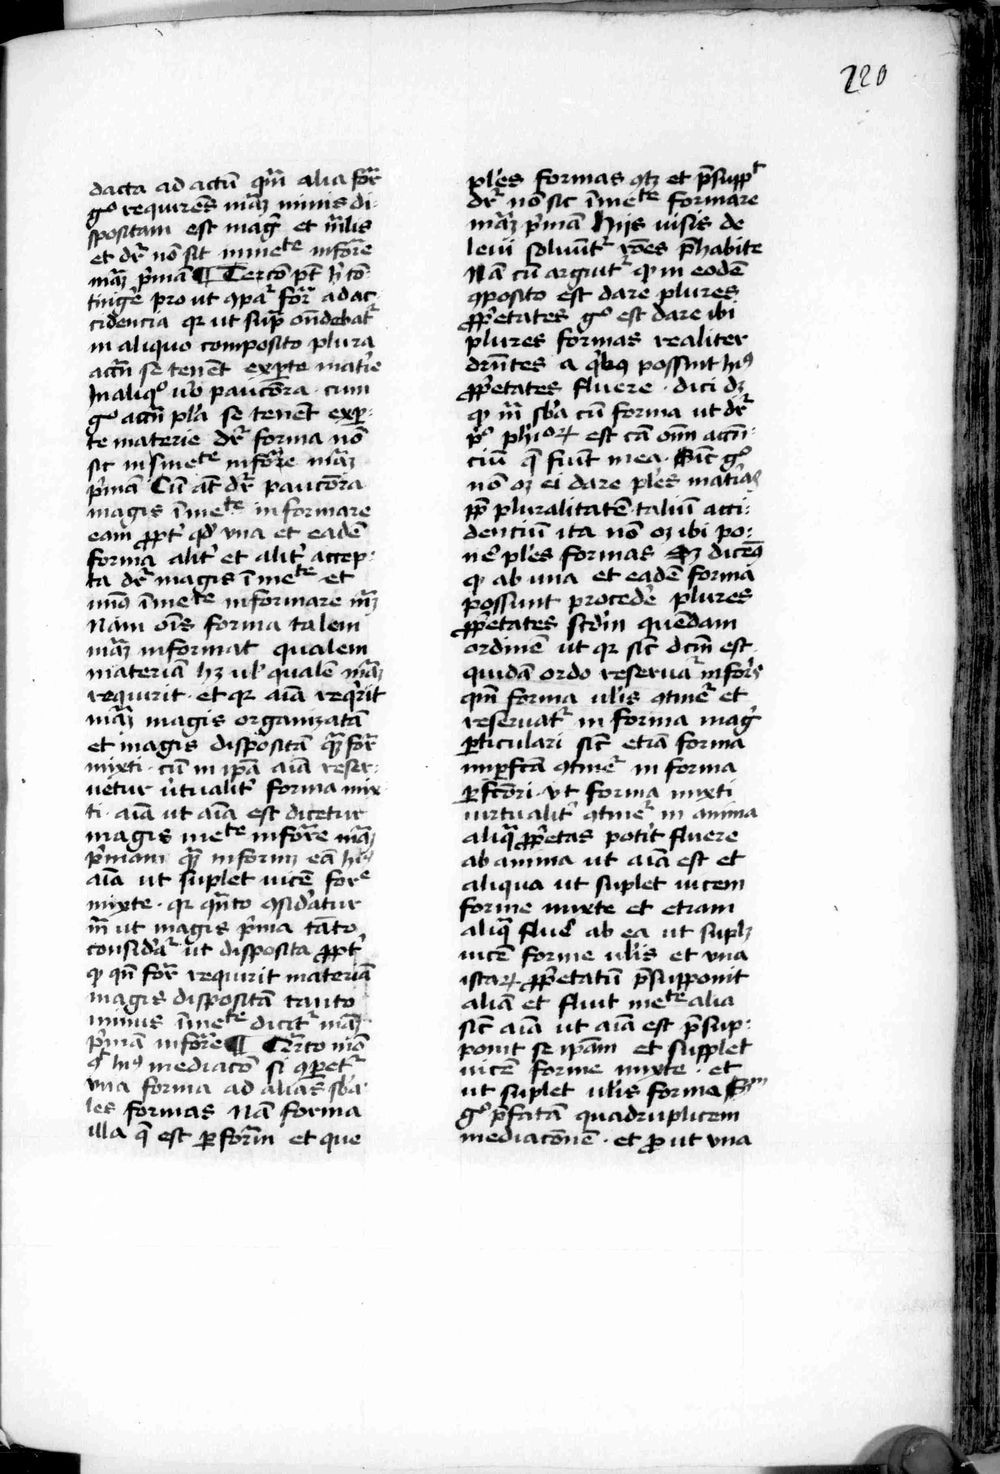 220
dacta ad actū qm̄ alia for̄
gͦ requirēs māꝫ minus di-
spositam est maḡ et mīlis
et dr̄ nō sit inmete infor̄e
māꝫ pͥmā ¶ Tercō pt̄ h̄ cō-
tinge᷑ pro ut ꝯpat᷑ for̄ ad ac-
cidencia qr ut sup̄ ondebat᷑
in aliquo composito plura
accn̄ se tenēt ex ꝑte mat̄ie
In aliqͦ v̄o pauciōra cum
gͦ accn̄ pla᷑ se tenēt ex ꝑ-
te materie dr̄ forma nō
sic inmete infor̄e māꝫ
pͥmā Cū at̄ dr̄ pauciōra
magis īmete informare
eam ꝓpt᷑ qd̄ vna et eadē
forma alit᷑ et alit᷑ accep-
ta dr̄ magis īmete et
imō īmete informare māꝫ
Nam oīs forma talem
māꝫ informat qualem
materiā hꝫ ul̄ qualē māꝫ
requirit et qr aīa reqͥrit
māꝫ magis organizatā
et magis dispositā qꝫ for̄
mixti cū in ip̄a aīa reser-
uetur v̓tualit᷑ forma mix
ti aīa ut aīa est dicetur
magis mete infor̄e māꝫ
pͥmam qꝫ informꝫ eā hꝰ
aīa ut suplet uicē fore
mixte qr qn̄to ꝯsid̓atur
m̄ ut magis pͥma tāto
considāt᷑ ut disposita ꝓpt᷑
qꝫ qn̄ for̄ requirit materiā
magis dispositā tanto
minus īmete dicit᷑ māꝫ
pͥmā infor̄e ¶ Qͣrto mō
hꝰ mediacō si ꝯꝑet᷑
vna forma ad alias sba-
les formas Nā forma
illa q̄ est ꝑ forīn et que
ples formas ꝯtꝫ et p̄suppt
dr̄ nō sic īmete formare
māꝫ pͥmā Hijs uisis de
leui soluūt᷑ rōes p̄habite
Nā cū arguit᷑ qꝫ in eodē
ꝯposito est dare plures
ꝓp̓etates gͦ est dare ibi
plures formas realiter
drūtes a qͥbꝰ possint hꝰ
ꝓp̓etates fluere dici dꝫ
qꝫ m̄ sb̄a cū forma ut dr̄
pͦ phicoꝝ est cā oīm accn̄-
ciū q̄ fiūt mea Sic̄ gͦ
nō oꝫ ei dare ples mat̄ias
ꝓp̄ pluralitatē taliū acci-
denciū ita nō oꝫ ibi po-
ne᷑ ples formas Sꝫ diceꝫ
qꝫ ab una et eadē forma
possunt procede᷑ plures
ꝓp̓etates scd̄m quēdam
ordinē ut qr sic̄ dcm̄ est
quidā ordo reseruat᷑ in for̄s
qm̄ forma ul̄is ꝯtinet᷑ et
reseruat᷑ in forma maḡ
ꝑticulari sic̄ etiā forma
imꝑfcā ꝯtinet᷑ in forma
ꝑfcōri vt forma mixti
uirtualit᷑ ꝯtinet᷑ in anima
aliqͣ ꝓp̓etas potit fluere
ab anima ut aīa est et
aliqua ut suplet uicem
forme mixte et etiam
aliqͣ flue᷑ ab ea ut suplꝫ
uicē forme ul̄is et vna
istaꝝ ꝓp̓etatū p̄supponit
aliā et fluit mete alia
sic̄ aīa ut aīa est p̄sup-
ponit se ip̄am et supplet
uicē forme mixte et
ut suplet ul̄is forme Scͫ
gͦ p̄fatā quadruplicem
mediacōnē et ꝓ ut vna